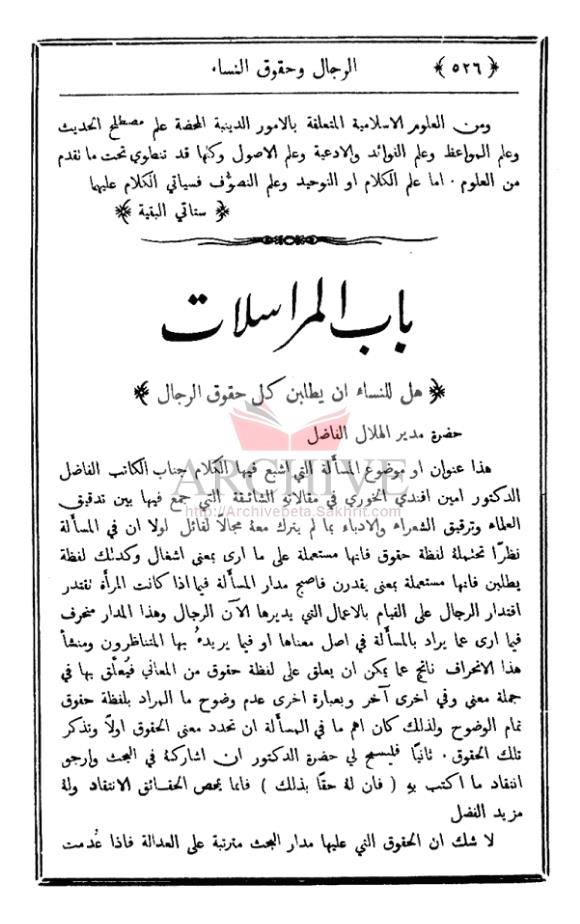 ﴿ ٥٢٦ ﴾ الرجال وحقوق النساء
ومن العلوم الاسلامية المتعلقة بالامور الدينية المحضة علم مصطلح الحديث
وعلم المواعظ وعلم الفوائد والادعية وعلم الاصول وكلها قد تنطوي تحت ما تقدم
من العلوم . اما علم الكلام او التوحيد وعلم التصوُّف فسياتي الكلام عليها
﴿ ستاتي البقية ﴾
باب المراسلات
﴿ هل للنساء ان يطلبن كل حقوق الرجال ﴾
حضرة مدير الهلال الفاضل
هذا عنوان او موضوع المسألة التي اشبع فيها الكلام جناب الكاتب الفاضل
الدكتور امين افندي الخوري في مقالاته الشائقة التي جمع فيها بين تدقيق
العلماء وترقيق الشعراء والادباء بما لم يترك معهُ مجالاً لقائل لولا ان في المسألة
نظرًا تحتملهُ لفظة حقوق فانها مستعملة على ما ارى بمعنى اشغال وكذلك لفظة
يطلبن فانها مستعملة بمعنى يقدرن فاصبح مدار المسألة فيما اذا كانت المرأة تقتدر
اقتدار الرجال على القيام بالاعمال التي يديرها الآن الرجال وهذا المدار منحرف
فيما ارى عما يراد بالمسألة في اصل معناها او فيما يريدهُ بها المتناظرون ومنشأ
هذا الانحراف ناتج عما يمكن ان يعلق على لفظة حقوق من المعاني فيُعلَّق بها في
جملة معنى وفي اخرى آخر وبعبارة اخرى عدم وضوح ما المراد بلفظة حقوق
تمام الوضوح ولذلك كان اهم ما في المسألة ان تحدد معنى الحقوق اولاً وتذكر
تلك الحقوق . ثانيًا فليسمح لي حضرة الدكتور ان اشاركهُ في البحث وارجو
انتقاد ما اكتب بهِ ( فان لهُ حقًا بذلك ) فانما يمحص الحقائق الانتقاد ولهُ
مزيد الفضل
لا شك ان الحقوق التي عليها مدار البحث مترتبة على العدالة فاذا عُدمت
ARCHIVE
http://Archivebeta.Sakhrit.com